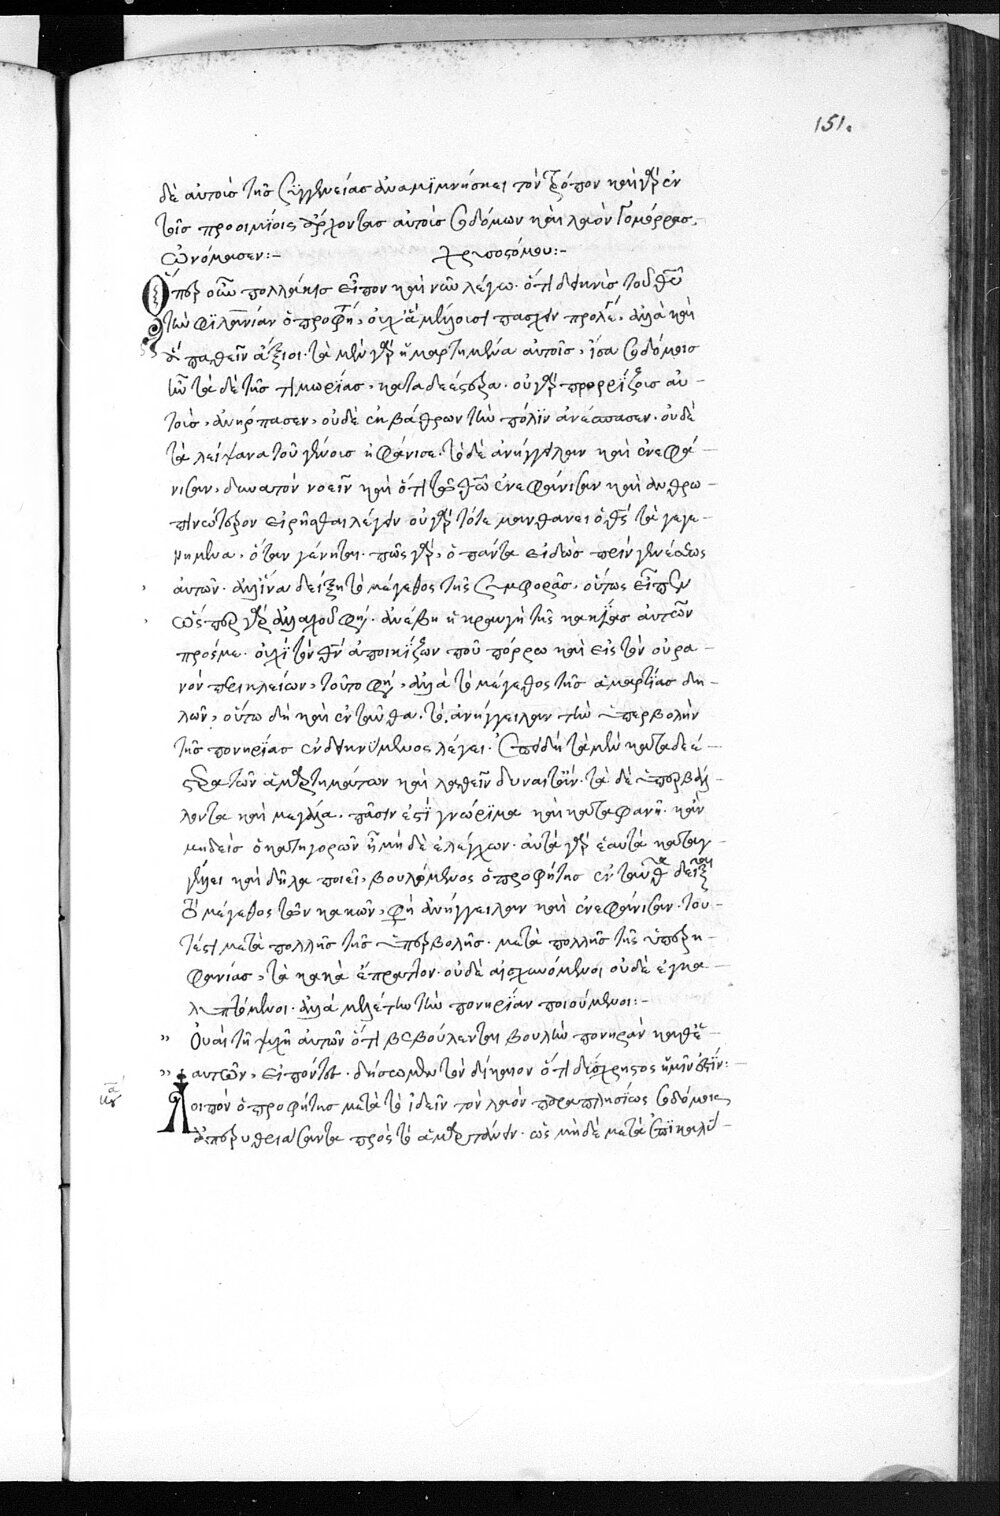 151.
δὲ αὐτοὺς τῆς συγγενείας ἀναμϊμνήσκει τὸν τρόπον καὶ γὰρ ἐν
τοῖς προοιμίοις ἄρχοντας αὐτοὺς σοδόμων καὶ λαὸν γομόρρας,
ὠνόμασεν:–
χρυσοστόμου:–
Ὅπερ οὖν πολλάκις εἶπον καὶ νῦν λέγω. ὅτι δεικνὺς τοῦ θεοῦ
τὴν φιλανθρωπίαν ὁ προφήτης, οὐχ ἃ μέλλουσι πάσχειν προλέγει, ἀλλὰ καὶ
ὧν παθεῖν ἄξιοι. τὰ μὲν γὰρ ἡμαρτημένα αὐτοῖς, ἴσα σοδόμοις
ἦν τὰ δὲ τῆς τιμωρίας, καταδεέστερα. οὐ γὰρ προρρίζους αὐ–
τοὺς, ἀνήρπασεν, οὐδὲ ἐκ βάθρων τὴν πόλϊν ἀνέσπασεν. οὐδὲ
τὰ λείψανα τοῦ γένους ἠφάνισε. τὸ δὲ ἀνήγγειλαν καὶ ἐνεφά–
νισαν, δυνατὸν νοεῖν καὶ ὅτι τῷ θεῷ ἐνεφάνισαν καὶ ἀνθρω–
πινώτερον εἰρῆσθαι λέγειν οὐ γὰρ τότε μανθάνει ὁ θεὸς τὰ γεγε–
νημένα, ὅταν γένηται. πῶς γὰρ, ὁ πάντα εἰδὼς πρὶν γενέσεως
αὐτῶν. ἀλλ' ἵνα δείξῃ τὸ μέγεθος τῆς συμφορᾶς, οὕτως εἶπεν
ὥσπερ γὰρ ἀλλαχοῦ φησὶ. ἀνέβη ἡ κραυγὴ τῆς κακίας αὐτῶν
πρός με. οὐχὶ τὸν θεὸν ἀποικίζων που πόρρω καὶ εἰς τὸν οὐρα–
νὸν περικλείων, τοῦτό φησι, ἀλλὰ τὸ μέγεθος τῆς ἁμαρτίας δη–
λῶν, οὕτω δὴ καὶ ἐνταῦθα. τὸ ἀνήγγειλαν τὴν ὑπερβολὴν
τῆς πονηρίας ἐνδεικνύμενος λέγει. ἐπειδὴ τὰ μὲν καταδεέ–
στερα τῶν ἁμαρτημάτων καὶ λαθεῖν δύναιτ' ἄν. τὰ δὲ ὑπερβάλ–
λοντα καὶ μεγάλα, πᾶσιν ἐστϊ γνώρϊμα καὶ καταφανῆ. κἂν
μηδεὶς ὁ κατηγορῶν ᾖ μηδὲ ἐλέγχων. αὐτὰ γὰρ ἑαυτὰ καταγ–
γέλλει καὶ δῆλα ποιεῖ, βουλόμενος ὁ προφήτης ἐνταῦθα δεῖξαι
τὸ μέγεθος τῶν κακῶν, φησὶ ἀνήγγειλαν καὶ ἐνεφάνισαν. του–
τέστι μετὰ πολλῆς τῆς ὑπερβολῆς. μετὰ πολλῆς τῆς ὑπερη–
φανίας, τὰ κακὰ ἔπραττον. οὐδὲ αἰσχυνόμενοι οὐδὲ ἐγκα–
λυπτόμενοι. ἀλλὰ μελέτην τὴν πονηρίαν ποιούμενοι:–
Οὐαὶ τῇ ψυχῇ αὐτῶν ὅτι βεβούλευνται βουλὴν πονηρὰν καθ' ἑ–
αυτῶν, εἰπόντες. δήσωμεν τὸν δίκαιον ὅτι δύσχρηστος ἡμῖν ἐστϊν:–
Λοιπὸν ὁ προφήτης μετὰ τὸ ἰδεῖν τὸν λαὸν παραπλησίως σοδόμοις
ἀπερυθριάσαντα πρὸς τὸ ἁμαρτάνειν. ὡς μηδὲ μετὰ ἐπικαλύ–